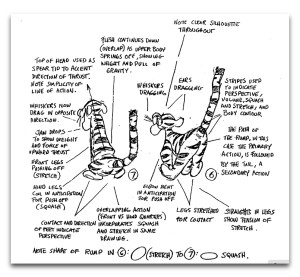 NOTE CLEAR SILHOUETTE
THROUGHOUT
FLESH CONTINUES DOWN
(OVERLAP) AS UPPER BODY
SPRINGS OFF, SHOWING
WEIGHT AND PULL OF
GRAVITY.
TOP OF HEAD USED AS
SPEAR TIP TO ACCENT
DIRECTION OF THRUST.
NOTE SIMPLICITY OF
LINE OF ACTION.
WHISKERS
DRAGGING
EARS
DRAGGING
STRIPES USED
TO INDICATE
PERSPECTIVE,
VOLUME, SQUASH
AND STRETCH; AND
BODY CONTOUR.
WHISKERS NOW
DRAG IN OPPOSITE
DIRECTION.
JAW DROPS
TO SHOW WEIGHT
AND FORCE OF
UPWARD THRUST
FRONT LEGS
PUSHING OFF
(STRETCH)
THE PATH OF
THE ROMP, IN THIS
CASE THE PRIMARY
ACTION, IS FOLLOWED
BY THE TAIL, A
SECONDARY ACTION
HIND LEGS
COIL IN ANTICIPATION
FOR PUSH OFF
(SQUASH)
7
6
CONTACT AND DIRECTION
OF FEET INDICATE
PERSPECTIVE
OVERLAPPING ACTION
(FRONT VS HIND QUARTERS)
INCORPORATES SQUASH
AND STRETCH IN SAME
DRAWING.
ELBOW BENT IN
ANTICIPATION
FOR PUSH OFF
LEGS STRETCHED
FOR CONTACT
STRAIGHTS IN LEGS
SHOW TENSION OF
STRETCH.
NOTE SHAPE OF ROMP IN 6 (STRETCH) TO 7 SQUASH.